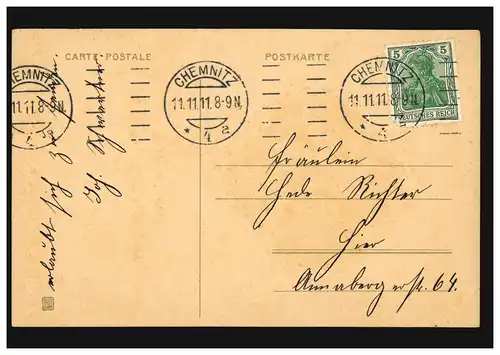 CARTE POSTALE
POSTKARTE
CHEMNITZ
11.11.11.8-9N.
* 4 a
CHEMNITZ
11.11.11.8-9N.
* 4
CHEMNITZ
11.11.8-9N.
5 5
DEUTSCHES REICH
Fräulein
Hede Richter
Hier
Annaberger str. 64.
erlaubt sich zu
Joh.